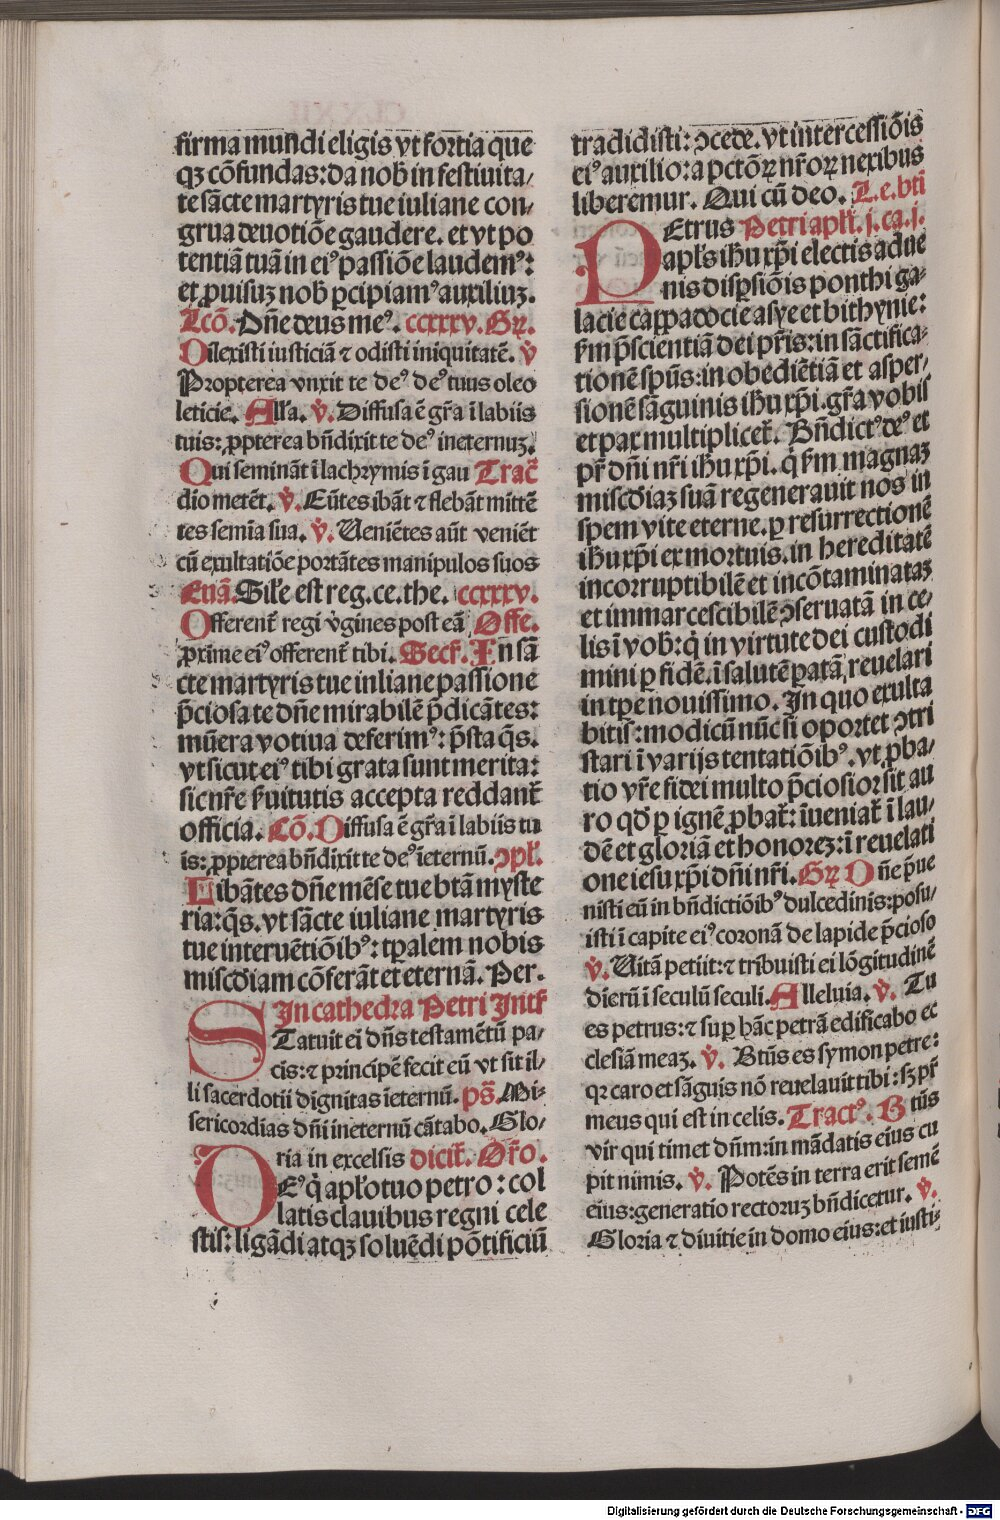 firma mundi eligis vt fortia que
qꝫ cōfundas: da nob̄ in festiuita⸗
te sācte martyris tue iuliane con⸗
grua deuotiōe gaudere. et vt po
tentiā tuā in eiꝰ passiōe laudemꝰ:
et ꝓuisuꝫ nob̄ ꝑcipiamꝰ auxiliuꝫ.
Lcō. Dn̄e deus meꝰ. ccxxxv. Gꝝ.
Dilexisti iusticiā ⁊ odisti iniquitatē. v̇
Propterea vnxit te deꝰ deꝰ tuus oleo
leticie. Alla. v̇. Diffusa ē gr̄a ī labiis
tuis: ꝓpterea bn̄dixit te deꝰ in eternuꝫ.
Qui semināt ī lachrymis ī gau Trac̄
dio metēt. v̇. Eūtes ibāt ⁊ flebāt mittē
tes semīa sua. v̇. Ueniētes aūt veniēt
cū exultatiōe portātes manipulos suos
Euā. Sil̄e est reg. ce. the. ccxxxv.
Offerent̄ regi v̇gines post eā Offe.
ꝓxime eiꝰ offerent̄ tibi. Secr̄. In sā
cte martyris tue inliane passione
p̄ciosa te dn̄e mirabilē p̄dicātes:
mūera votiua deferimꝰ: p̄sta q̄s.
vt sicut eiꝰ tibi grata sunt merita:
sic nr̄e ẜuitutis accepta reddant̄
officia. Cō. Diffusa ē gr̄a ī labiis tu
is: ꝓpterea bn̄dixit te deꝰ īeternū. ↄpl̄.
Libātes dn̄e mēse tue btā myste
ria: q̄s. vt sācte iuliane martyris
tue interuētiōibꝰ: tꝑalem nobis
miscd̄iam cōferāt et eternā. Per.
In cathedra Petri Intr̄
Statuit ei dn̄s testamētū pa⸗
cis: ⁊ principē fecit eū vt sit il⸗
li sacerdotii dignitas īeternū. ps̄. Mi⸗
sericordias dn̄i ineternū cātabo. Glo⸗
ria in excelsis dicit̄. Or̄o.
DEꝰ q̇ apl̄o tuo petro: col
latis clauibus regni cele
stis: ligādi atqꝫ soluēdi pōtificiū
tradidisti: ↄcede. vt intercessiōis
eiꝰ auxilio: a pctōꝝ nr̄oꝝ nexibus
liberemur. Qui cū deo. L. e. bti
PEtrus Petri apl̄i. j. ca. j.
apl̄s ihu xp̄i electis adue
nis disꝑsiōis ponthi ga⸗
lacie cappadocie asye et bithynie:
ẜm p̄scientiā dei pr̄is: in sāctifica⸗
tionē spūs: in obediētiā et asper⸗
sionē sāguinis ihu xp̄i. gr̄a vobis
et pax multiplicet̄. Bn̄dictꝰ deꝰ et
pr̄ dn̄i nr̄i ihu xp̄i. q̇ ẜm magnaꝫ
miscd̄iaꝫ suā regenerauit nos in
spem vite eterne. ꝑ resurrectionē
ihu xp̄i ex mortuis. in hereditatē
incorruptibilē et incōtaminataꝫ
et immarcescibilē ↄseruatā in ce⸗
lis ī vob̄: q̇ in virtute dei custodi
mini ꝑ fidē. ī salutē ꝑatā, reuelari
in tꝑe nouissimo. In quo exulta
bitis: modicū nūc si oportet ↄtri
stari ī varijs tentatiōibꝰ. vt ꝓba⸗
tio vr̄e fidei multo p̄ciosior sit au
ro qd̄ ꝑ ignē ꝓbat̄: īueniat̄ ī lau⸗
dē et gloriā et honoreꝫ: ī reuelati
one iesu xp̄i dn̄i nr̄i. Gꝝ Dn̄e p̄ue
nisti eū in bn̄dictiōibꝰ dulcedinis: posu⸗
isti ī capite eiꝰ coronā de lapide p̄cioso
v̇. Uitā petiit: ⁊ tribuisti ei lōgitudinē
dierū ī seculū seculi. Alleluia. v̇. Tu
es petrus: ⁊ suꝑ hāc petrā edificabo ec
clesiā meaꝫ. v̇. Btūs es symon petre:
qꝛ caro et sāguis nō reuelauit tibi: sꝫ pr̄
meus qui est in celis. Tractꝰ. Btūs
vir qui timet dn̄m: in mādatis eius cu
pit nimis. v̇. Potēs in terra erit semē
eius: generatio rectoruꝫ bn̄dicetur. v̇.
Gloria ⁊ diuitie in domo eius: et iusti⸗
Digitalisierung gefördert durch die Deutsche Forschungsgemeinschaft - DFG